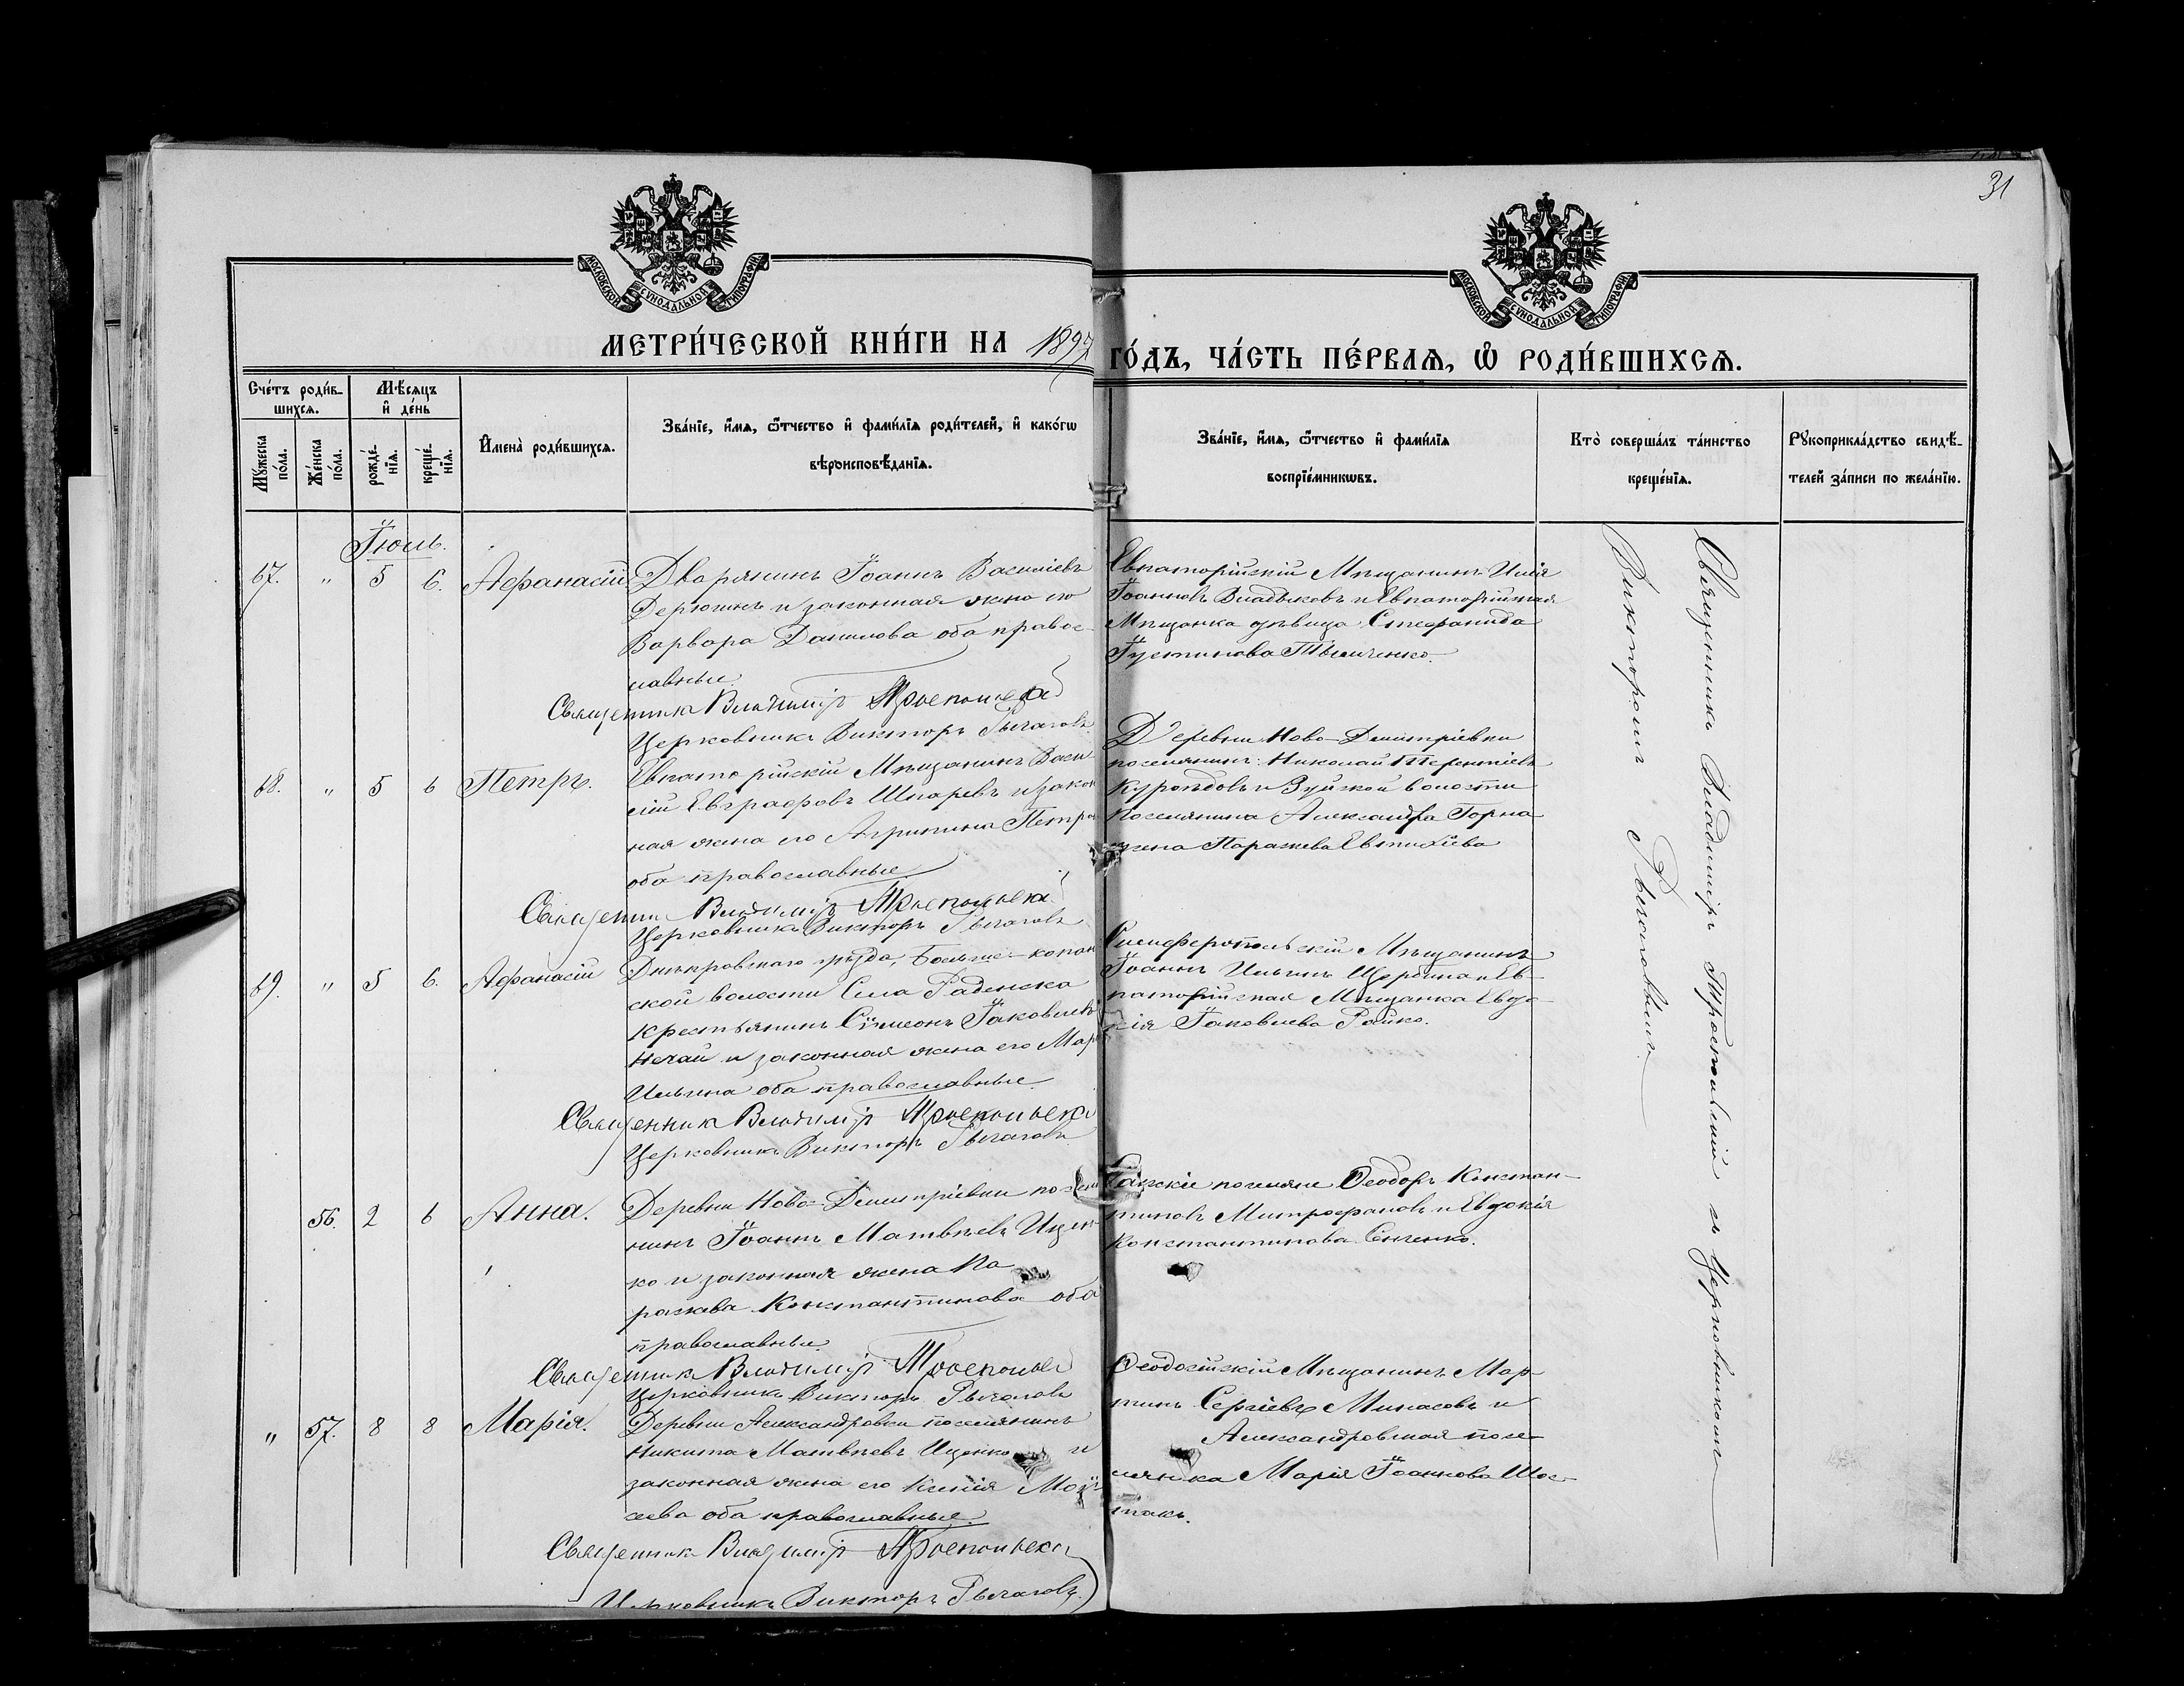 31
МОСКОВСКОЙ СУНОДАЛЬНОЙ ТИПОГРАФІИ
МОСКОВСКОЙ СУНОДАЛЬНОЙ ТИПОГРАФІИ
МЕТРИ́ЧЕСКОЙ КНИ́ГИ НА 1897 ГО́ДЪ, ЧА́СТЬ ПЕ́РВАѦ, Ѡ҆ РОДИ́ВШИХСѦ.
Сче́тъ роди́в-
шихсѧ.
Мѣ́сѧцъ
и҆ де́нь
Мꙋ́жеска
по́ла.
Же́нска
по́ла.
рожде́-
нїѧ.
креще́-
нїѧ.
И҆мена̀ роди́вшихсѧ.
Зва́нїе, и҆́мѧ, ѻ҆́тчество и҆ фами́лїѧ роди́телей, и҆ како́гѡ
вѣроисповѣ́данїѧ.
Зва́нїе, и҆́мѧ, ѻ҆́тчество и҆ фами́лїѧ
воспрїе́мникѡвъ.
Кто̀ соверша́лъ та́инство
креще́нїѧ.
Рꙋкоприкла́дство свидѣ́-
телей за́писи по жела́нїю.
Іюль.
67. " 5 6. Афанасій
Дворянинъ Іоаннъ Васильевъ
Дерюгинъ и законная жена его
Варвара Данилова оба правос-
лавные.
Священникъ Владиміръ
Церковникъ Викторъ Рычаговъ
Евпаторійскій Мѣщанинъ Илія
Іоанновъ Владыковъ и Евпаторійская
Мѣщанка дѣвица Стефанида
Іустинова
68. " 5 6 Петръ.
Евпаторійскій Мѣщанинъ Васи-
лій Евграфовъ Шпаревъ и закон
ная жена его Агрипина Петро
оба православные
Священникъ Владиміръ
Церковникъ Викторъ Рычаговъ
Деревни Ново-Димитріевки
поселянинъ Николай Терентіевъ
Куроѣдовъ и Зуйской волости
Поселянина Александра Горна
жена Параскева Евтихіева
69. " 5 6. Афанасій
Днѣпровскаго уѣзда, Больше-копан
ской волости Села Раденска
крестьянинъ Сѵмеонъ Іаковлевъ
Нечай и законная жена его Мар
Ильина оба православные.
Священникъ Владиміръ
Церковникъ Викторъ Рычаговъ
Симферопольскій Мѣщанинъ
Іоаннъ Ильинъ Щербина и Ев-
паторійская Мѣщанка Евдо-
кія Іаковлева Райко.
56. 2 6 Анна.
Деревни Ново-Димитріевки поселя
нинъ Іоаннъ Матвѣевъ Ищен-
ко и законная жена Па
раскева Константинова оба
православные.
Священникъ Владиміръ
Церковникъ Викторъ Рычаговъ
поселяне Ѳеодоръ Констан-
тиновъ Митрофановъ и Евдокія
Константинова Сенченко.
" 57. 8 8 Марія.
Деревни Александровки поселянинъ
Никита Матвѣевъ Ищенко и
законная жена его Ксенія Моѵ
сеева оба православные.
Священникъ Владиміръ
Церковникъ Викторъ Рычаговъ.
Ѳеодосійскій Мѣщанинъ Мар-
тинъ Сергіевъ Минасовъ и
Александровская посе-
лянка Марія Іоаннова Шос-
такъ.
Священникъ Владиміръ Троепольскій и Церковникомъ
Викторомъ Рычаговымъ